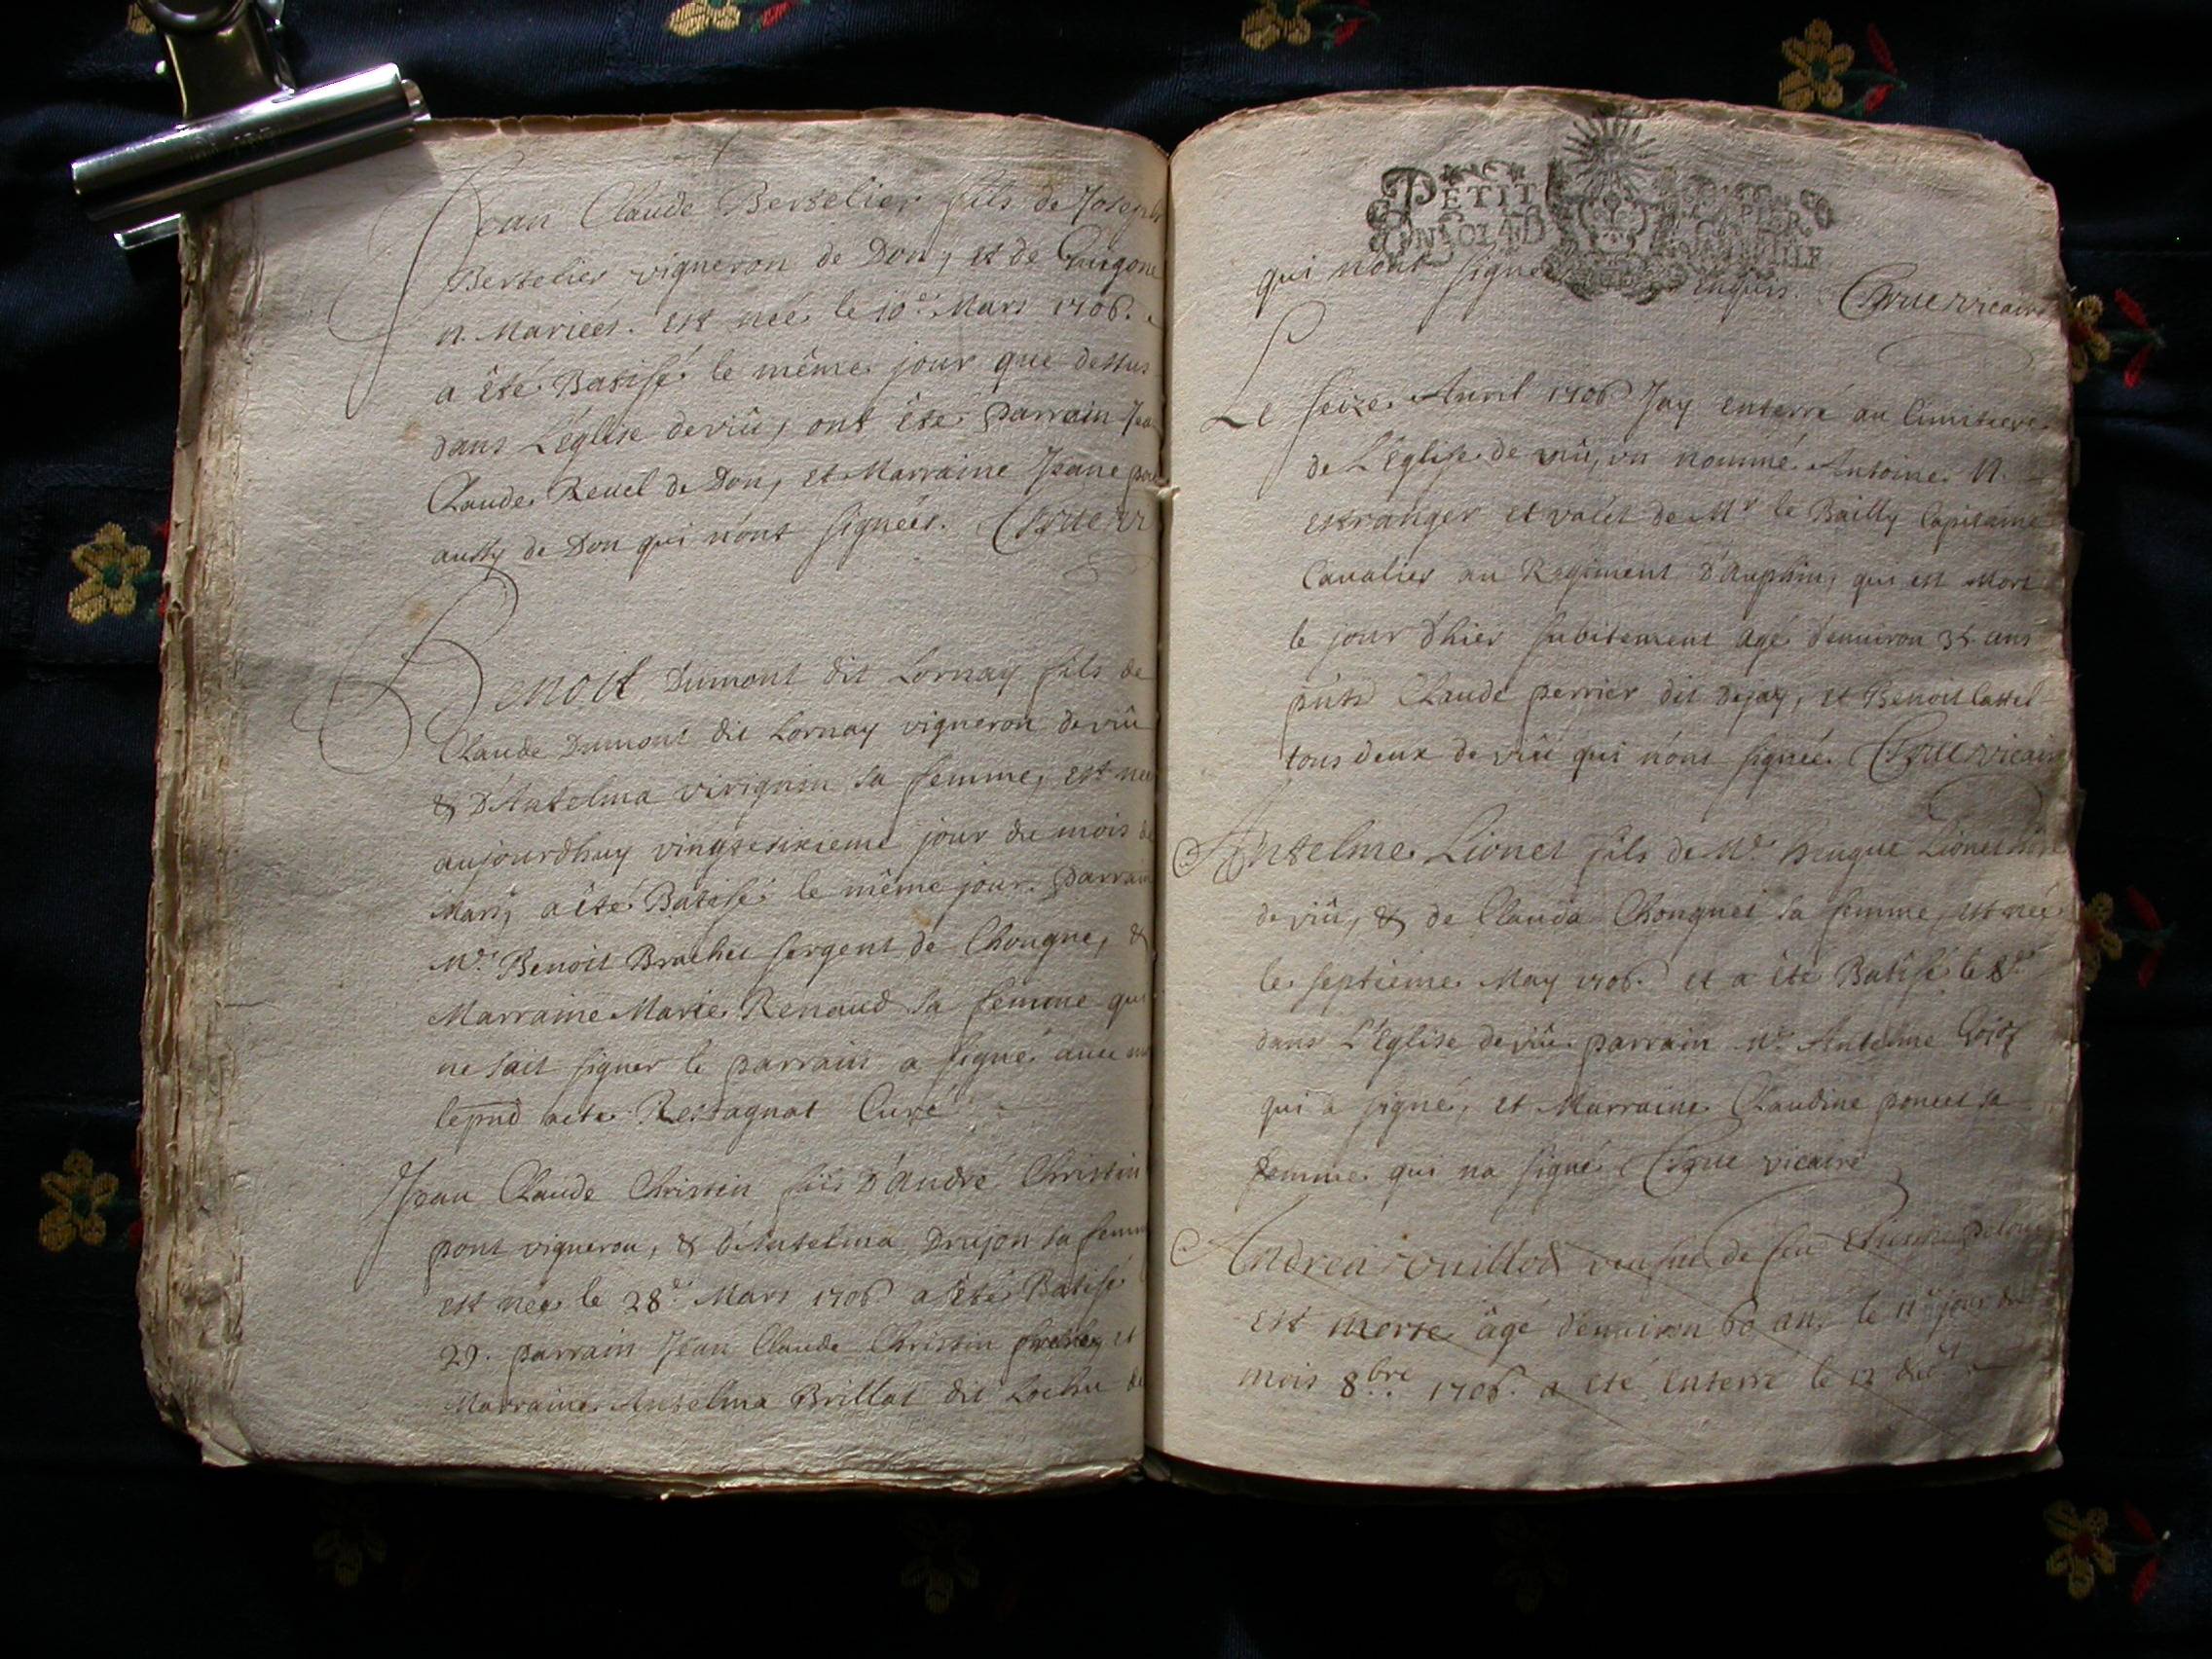 Jean Claude Bertelier fils de Joseph
Bertelier vigneron de Don, et de Guigone
n. Mariées. est née le 10e. Mars 1706.
a êté Batisé le même jour que dessus
dans L'église de viû, ont êté parrain Jea
Claude Revel de Don, et Marraine Jeane
aussy de Don qui n'ont signées.
Benoit Dumont dit Lornay fils de
Claude Dumont dit Lornay vigneron de viû
& D'Antelma virignin sa femme, est née
aujourdhuy vingtesixieme jour du mois de
Mars, a êté Batisé le même jour. parrain
Mr. Benoit Brachet sergent de Chougne, &
Marraine Marie Renaud sa femme qui
ne sait signer le parrain a signé avec
lepnd acte Restagnat Curé
Jean Claude Christin fils D'andré Christin
pont vigneron, & d'Antelma Drujon sa femm
est née le 28e. Mars 1706 a êté Batisé
29. parrain Jean Claude Christin et
Marraine Antelma Brillat dit Lochu de
PETIT PAPIER
qui n'ont signé enquis. vicaire
Le seize Avril 1706 J'ay enterré au Cimitiere
de L'Eglise de viû, un nommé Antoine N.
estranger et valet de Mr le Bailly Capitaine
Cavalier au Regiment D'auphin, qui est Mort
le jour d'hier subitement agé d'environ 35 ans
pnts Claude perrier dit Dejay, et Benoit Castel
tous deux de viû qui n'ont signée. vicaire
Antelme Lionet fils de Mr. hugue Lionet
de viû, & de Clauda Chonguet sa femme, est née
le septieme May 1706. et a êté Batisé le 8e
dans L'Eglise de viû. parrain Mr. Antelme
qui a signé, et Marraine Claudine poncet sa
femme qui na signé vicaire
Andrea vuillod veufue de feu
est morte âgé d'environ 60 an, le 11e jour du
mois 8bre 1706. a eté enterré le 12 dud